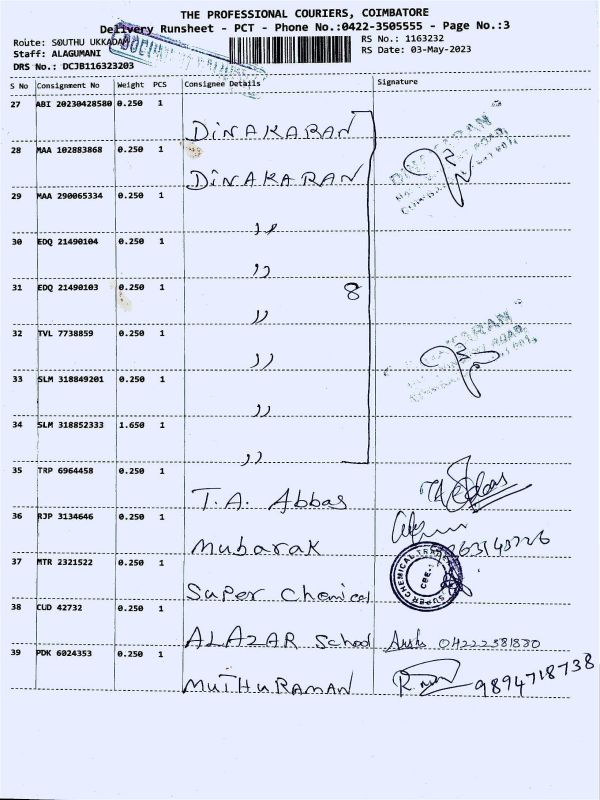 THE PROFESSIONAL COURIERS, COIMBATORE
Delivery Runsheet - PCT - Phone No.:0422-3505555 - Page No.:3
Route: SOUTHU UKKADAM RS No.: 1163232
Staff: ALAGUMANI RS Date: 03-May-2023
DRS No.: DCJB116323203
S No Consignment No Weight PCS Consignee Details Signature
27 ABI 20230428580 0.250 1 DINAKARAN
28 MAA 102883868 0.250 1 DINAKARAN
29 MAA 290065334 0.250 1 ,,
30 EDQ 21490104 0.250 1 ,,
31 EDQ 21490103 0.250 1 ,, 8
32 TVL 7738859 0.250 1 ,,
33 SLM 318849201 0.250 1 ,,
34 SLM 318852333 1.650 1 ,,
35 TRP 6964458 0.250 1 T.A. Abbas
36 RJP 3134646 0.250 1 Mubarak
37 MTR 2321522 0.250 1 Super Chemical
SUPER CHEMICAL CBE-1
38 CUD 42732 0.250 1 ALAZAR School
39 PDK 6024353 0.250 1 MUTHURAMAN 9894718738